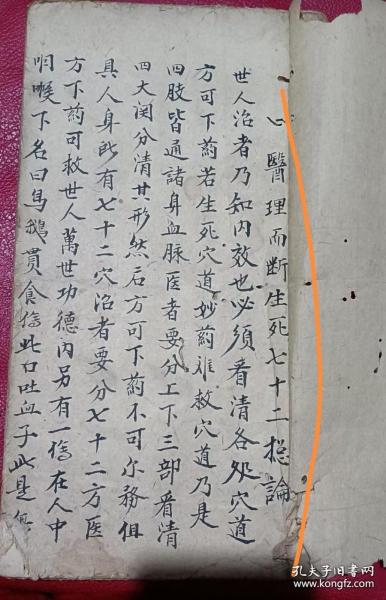 心醫理而断生死七十二總論
世人治者乃知内效也必須看清各处穴道
方可下药若生死穴道妙药难救穴道乃是
四肢皆通諸身血脉医者要分上下三部看清
四大闵分清其形然后方可下药不可尔務但
具人身所有七十二穴治者要分七十二方医
方下药可救世人萬世功德内另有一傷在人中
咽喉下名曰馬鹅貫食傷此口吐血子此是
孔夫子旧书网
www.kongfz.com